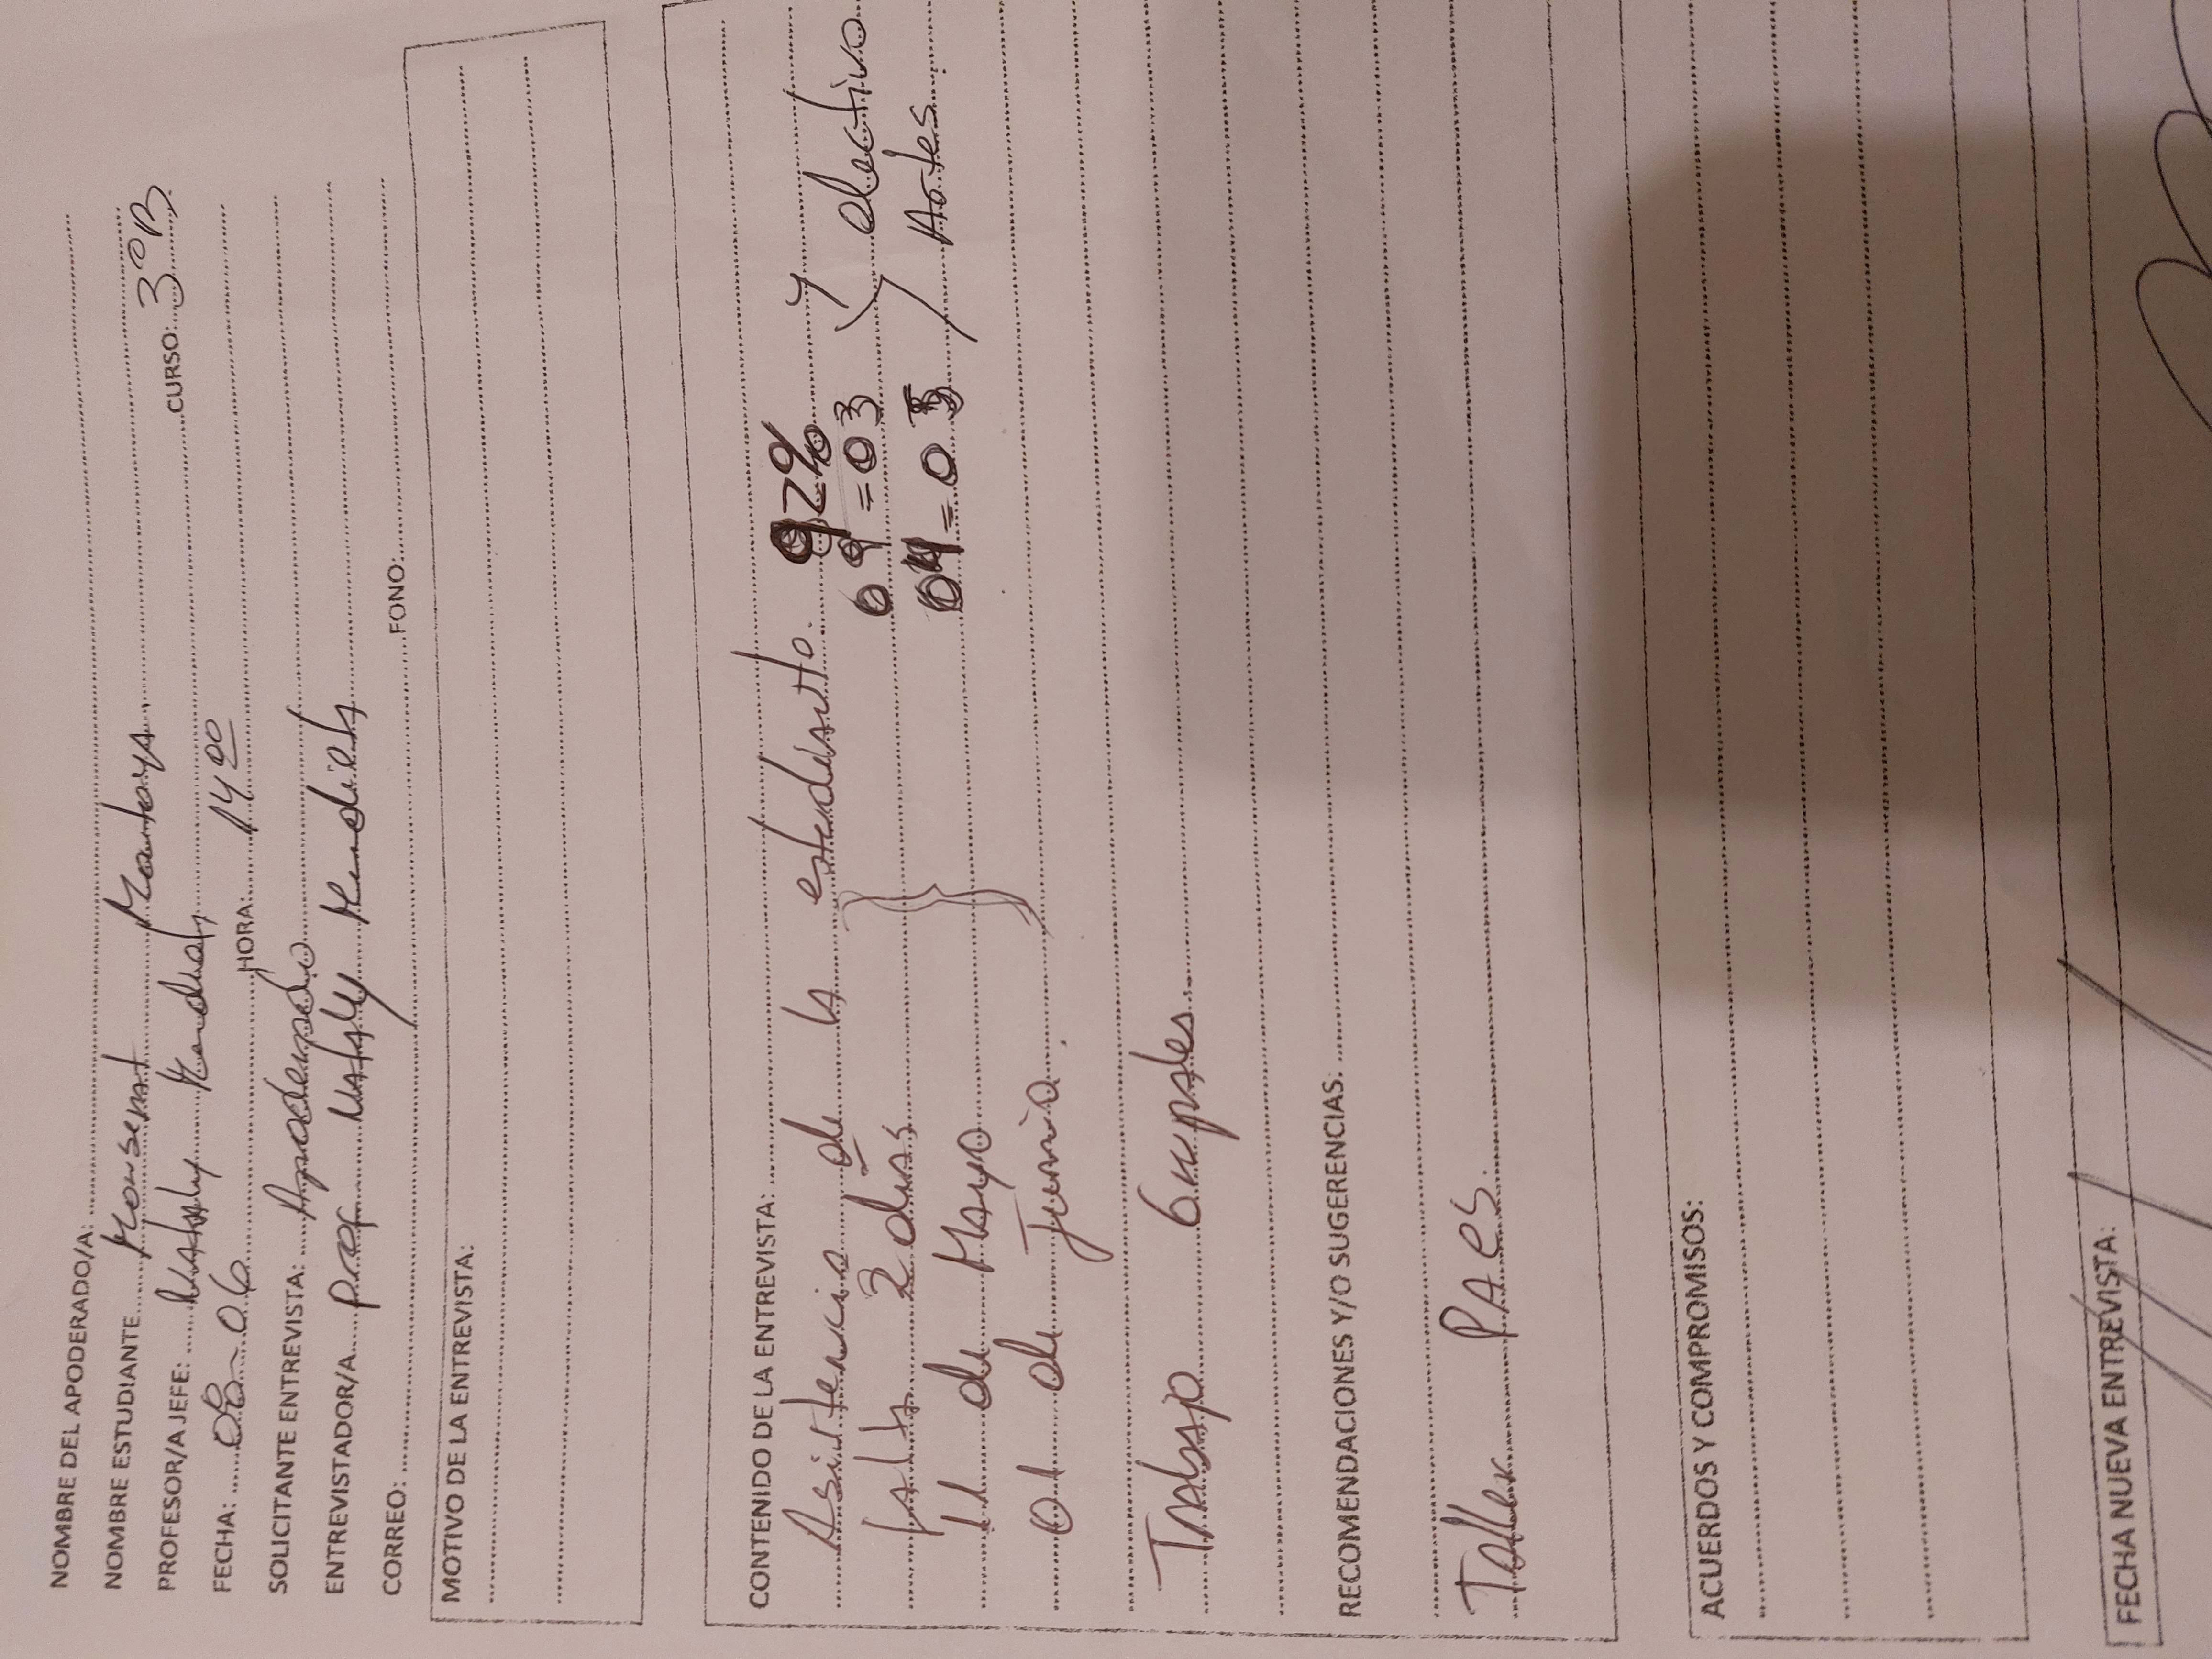 NOMBRE DEL APODERADO/A:
NOMBRE ESTUDIANTE Monserrat Montoya
PROFESOR/A JEFE: Nataly CURSO: 3°B
FECHA: 08-06 HORA: 14 00
SOLICITANTE ENTREVISTA: Apoderado
ENTREVISTADOR/A Prof Nataly Mendieta
CORREO: FONO:
MOTIVO DE LA ENTREVISTA:
CONTENIDO DE LA ENTREVISTA:
Asistencia de la estudiante. 92% y
falta 2 dias 69 = 03 electivo
11 de Mayo 04 = 03 Artes
01 de Junio.
Trabajo Grupales
RECOMENDACIONES Y/O SUGERENCIAS:
Taller PAES
ACUERDOS Y COMPROMISOS:
FECHA NUEVA ENTREVISTA: